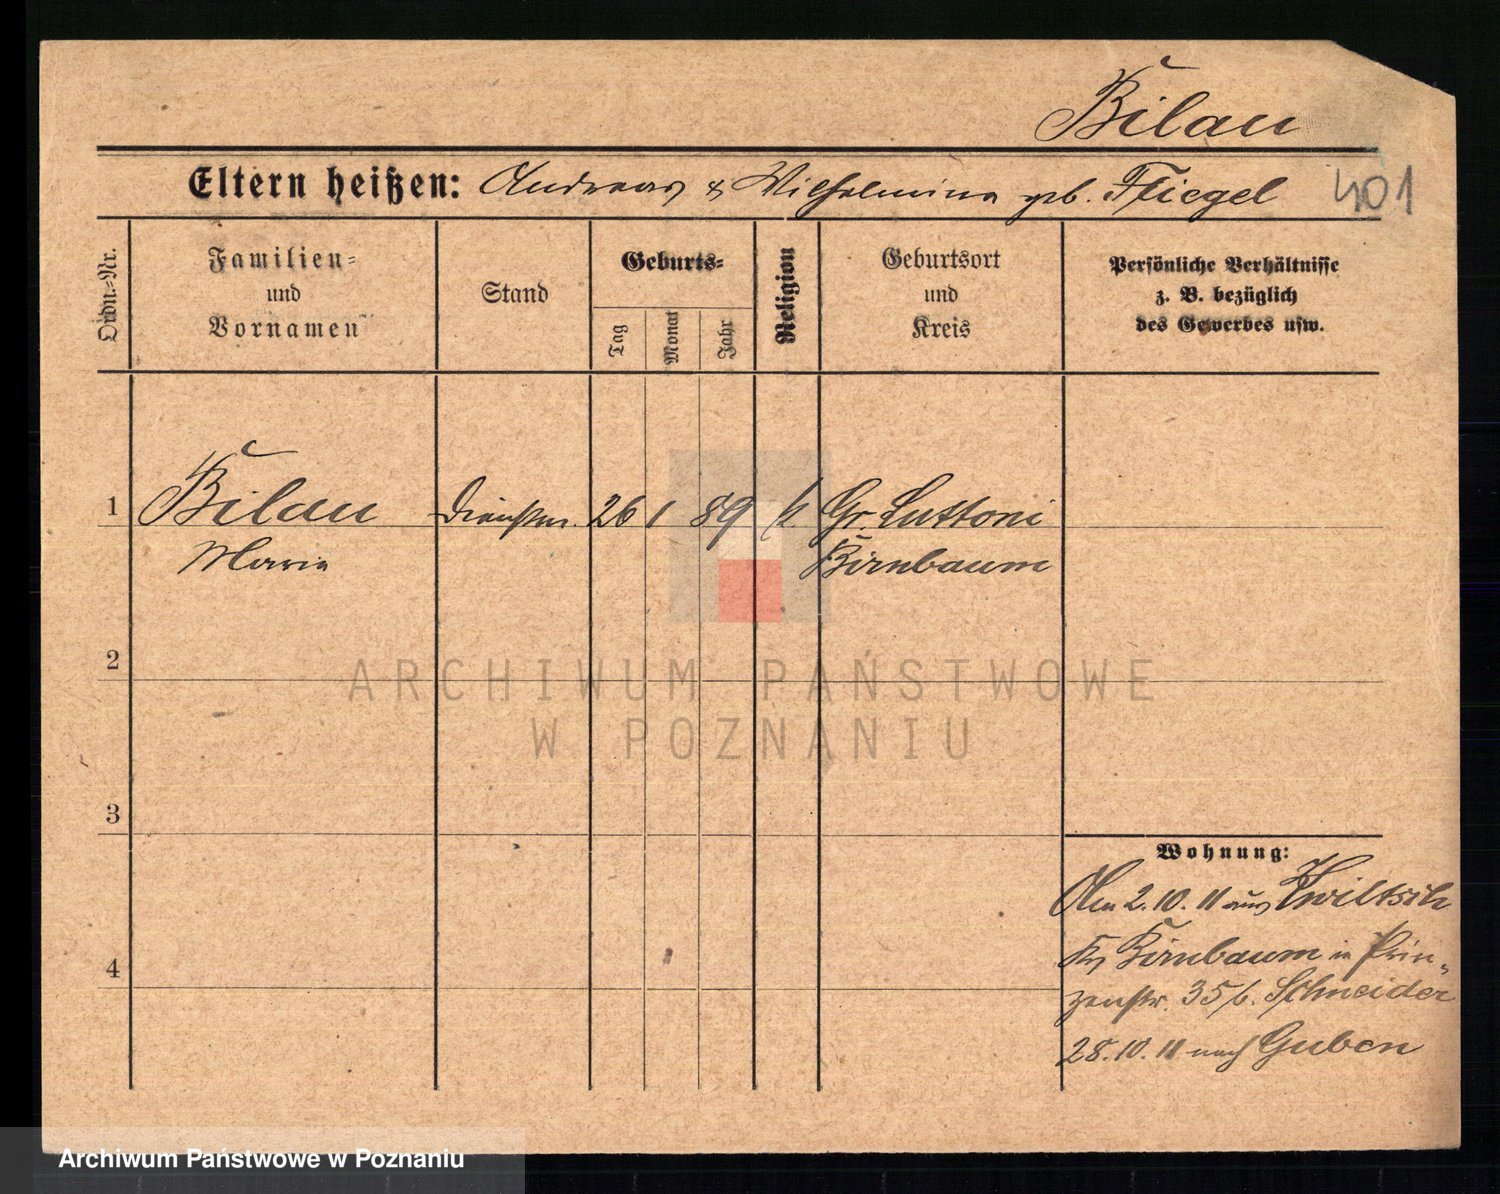 Bilau
Eltern heißen: Andreas & Wilhelmina geb. Fliegel
401
Ordn.-Nr.
Familien-
und
Vornamen
Stand
Geburts-
Tag
Monat
Jahr
Religion
Geburtsort
und
Kreis
Persönliche Verhältnisse
z. B. bezüglich
des Gewerbes usw.
1 Bilau Dienstm. 26 1 89 k Gr. Luttom
Maria Birnbaum
2
3
4
Wohnung:
Am 2.10.11 aus Kwiltsch
Kr. Birnbaum in Prin-
zenstr. 35 b. Schneider
28.10.11 nach Guben
ARCHIWUM PAŃSTWOWE
W POZNANIU
Archiwum Państwowe w Poznaniu